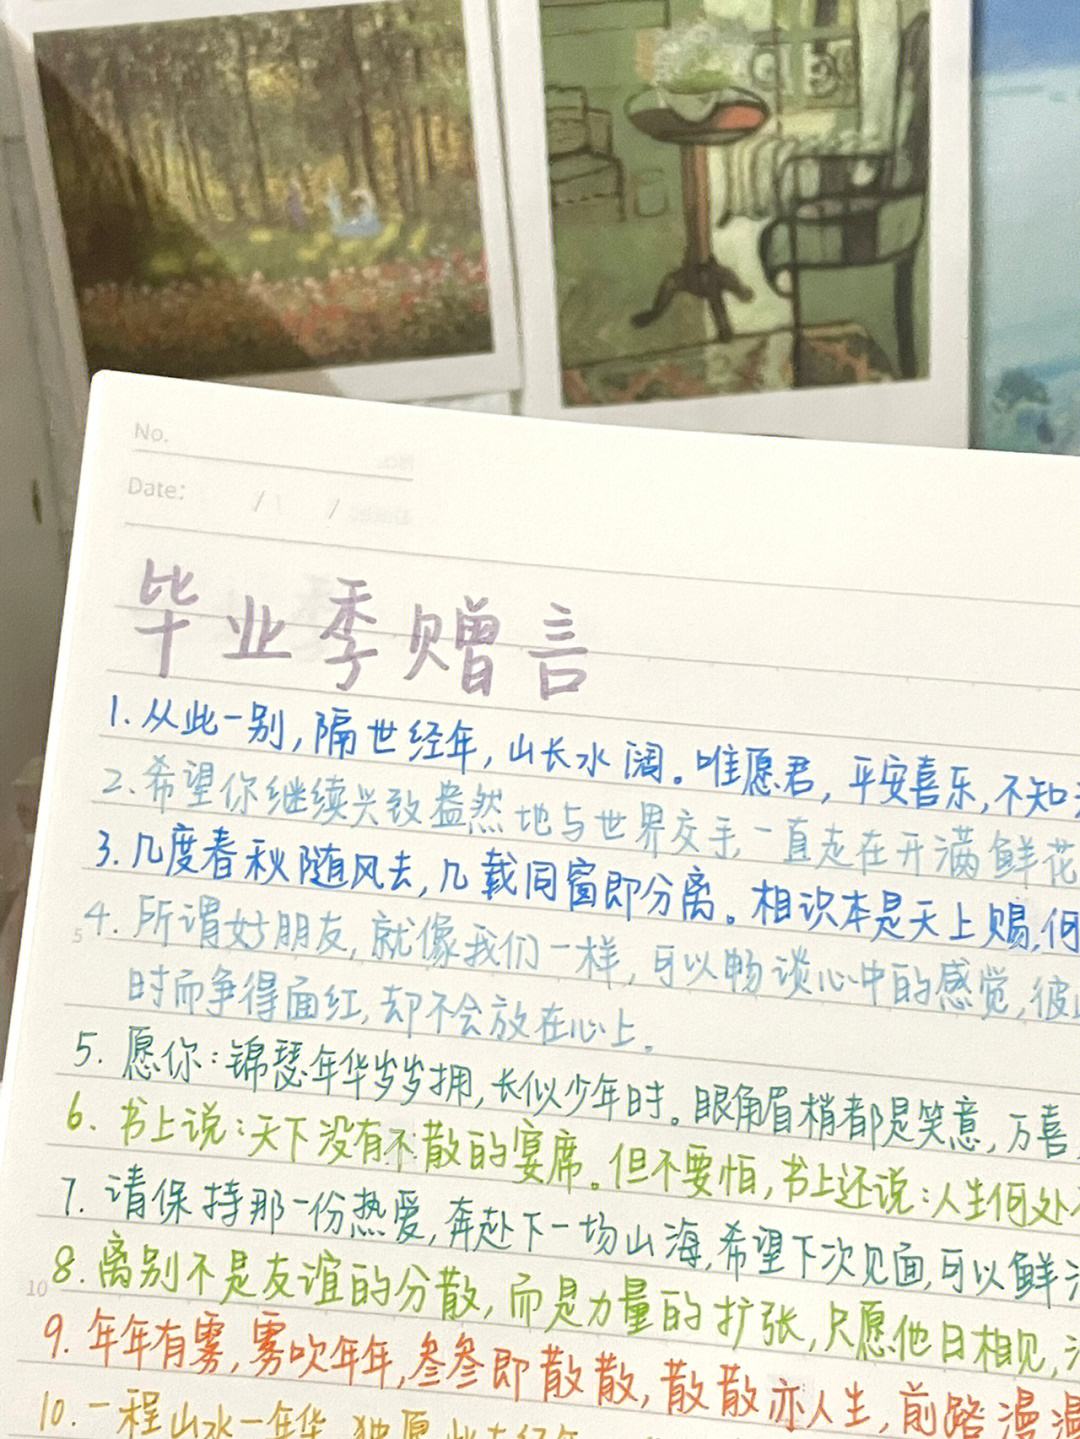 No.
Date: / /
毕业季赠言
1. 从此一别，隔世经年，山长水阔。唯愿君，平安喜乐，不知
2. 希望你继续兴致盎然地与世界交手，一直走在开满鲜花
3. 几度春秋随风去，几载同窗即分离。相识本是天上赐，何
4. 所谓好朋友，就像我们一样，可以畅谈心中的感觉，彼
5
时而争得面红，却不会放在心上。
5. 愿你：锦瑟年华岁岁拥，长似少年时。眼角眉梢都是笑意，万喜
6. 书上说：天下没有不散的宴席。但不要怕，书上还说：人生何处
7. 请保持那一份热爱，奔赴下一场山海，希望下次见面，可以鲜
8. 离别不是友谊的分散，而是力量的扩张，只愿他日相见，
10
9. 年年有雾，雾吹年年，叁叁即散散，散散亦人生，前路漫漫
10. 一程山水一年华